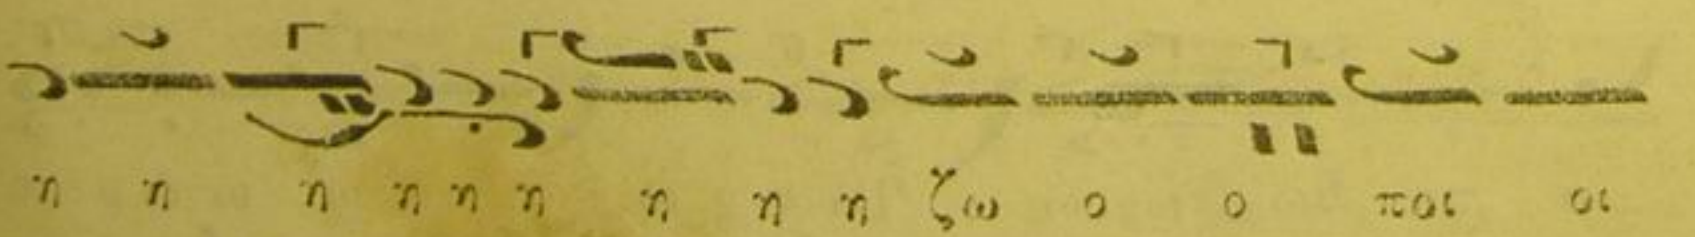 η η η η η η η η η ζω ο ο ποι οι